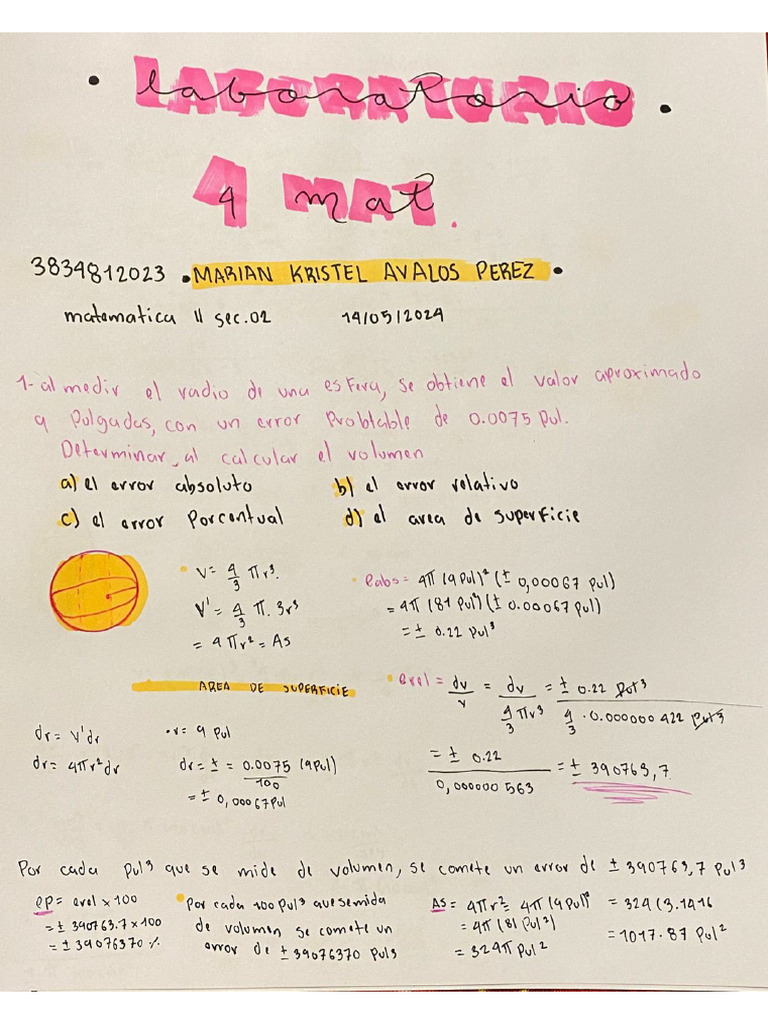 laboratorio
4 mat.
3834812023 • MARIAN KRISTEL AVALOS PEREZ •
matematica II sec.02 14/05/2024
1- al medir el radio de una esfera, se obtiene el valor aproximado
9 Pulgadas, con un error Probtable de 0.0075 Pul.
Determinar, al calcular el volumen
a) el error absoluto b) el error relativo
c) el error Porcentual d) el area de superficie
V = 4/3 πr³.
V' = 4/3 π. 3r²
= 4πr² = AS
eabs = 4π (9 Pul)² (± 0,00067 Pul)
= 4π (81 Pul²)(± 0.00067 Pul)
= ± 0.22 Pul³
AREA DE SUPERFICIE
erel = dv/v = dv / 4/3 πr³ = ± 0.22 Pul³ / 4/3 · 0.000000 422 Pul³
= ± 0.22 / 0,000000 563 = ± 390763,7
dr = V'dr
dr = 4πr²dr
• r = 9 Pul
dr = ± = 0.0075 (9Pul) / 100
= ± 0,00067Pul
Por cada Pul3 que se mide de volumen, se comete un error de ± 390763,7 Pul3
eP = erel x 100
= ± 390763.7 x 100
= ± 39076370 %
• Por cada 100 Pul³ que se mida
de volumen se comete un
error de ± 39076370 Pul3
AS = 4πr² = 4π (9 Pul)²
= 4π (81 Pul²)
= 324π Pul²
= 324 (3.1416
= 1017.87 Pul²